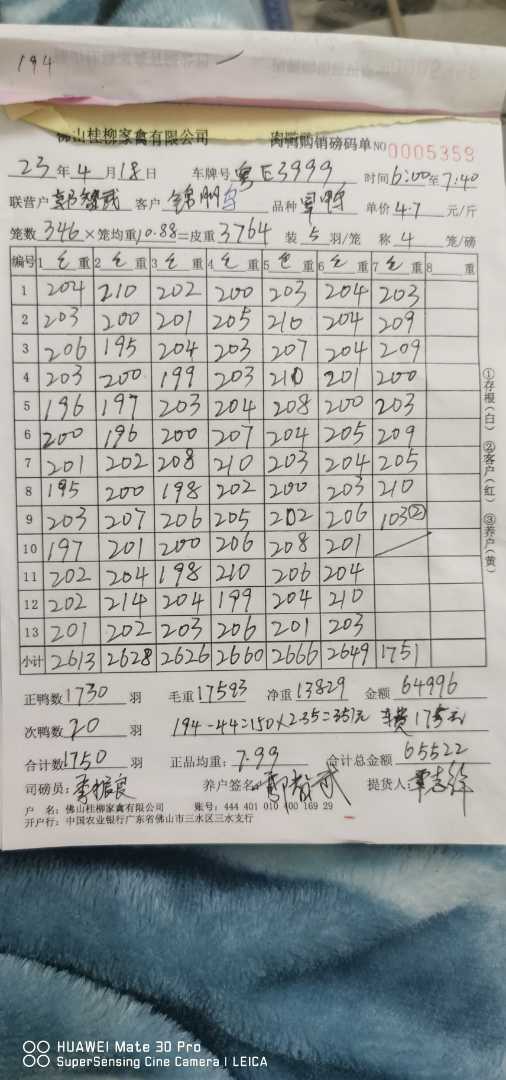 194
佛山桂柳家禽有限公司 肉鸭购销磅码单 NO 0005359
23年4月18日 车牌号 粤E3999 时间6:00至7:40
联营户 客户 锦 品种 单价4.7元/斤
笼数346×笼均重10.88=皮重3764 装5羽/笼 称4笼/磅
编号 1 毛重 2 毛重 3 毛重 4 毛重 5 毛重 6 毛重 7 毛重 8 重
1 204 210 202 200 203 204 203
2 203 200 201 205 210 204 209
3 206 195 204 203 207 204 209
4 203 200 199 203 210 201 200
5 196 197 203 204 208 200 203
6 200 196 200 207 204 205 209
7 201 202 208 210 203 204 205
8 195 200 198 202 200 203 210
9 203 207 206 205 202 206 103②
10 197 201 200 206 208 201
11 202 204 198 210 206 204
12 202 214 204 199 204 210
13 201 202 203 206 201 203
小计 2613 2628 2626 2660 2666 2649 1751
正鸭数1730羽 毛重17593 净重13829 金额64996
次鸭数20羽 194-44=150×2.35=351元 车费175元
合计数1750羽 正品均重:7.99 合计总金额65522
司磅员:李振良 养户签名: 提货人:覃志
户 名:佛山桂柳家禽有限公司 账号:444 401 010 400 169 29
开户行:中国农业银行广东省佛山市三水区三水支行
①存根(白) ②客户(红) ③养户(黄)
HUAWEI Mate 30 Pro
SuperSensing Cine Camera | LEICA